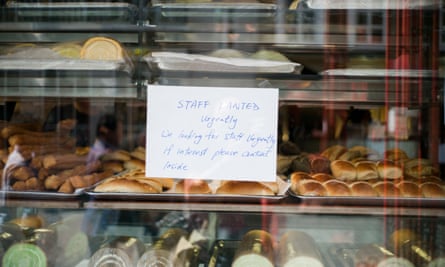 STAFF WANTED
Urgently
We looking for staff urgently
if interest please contact
inside